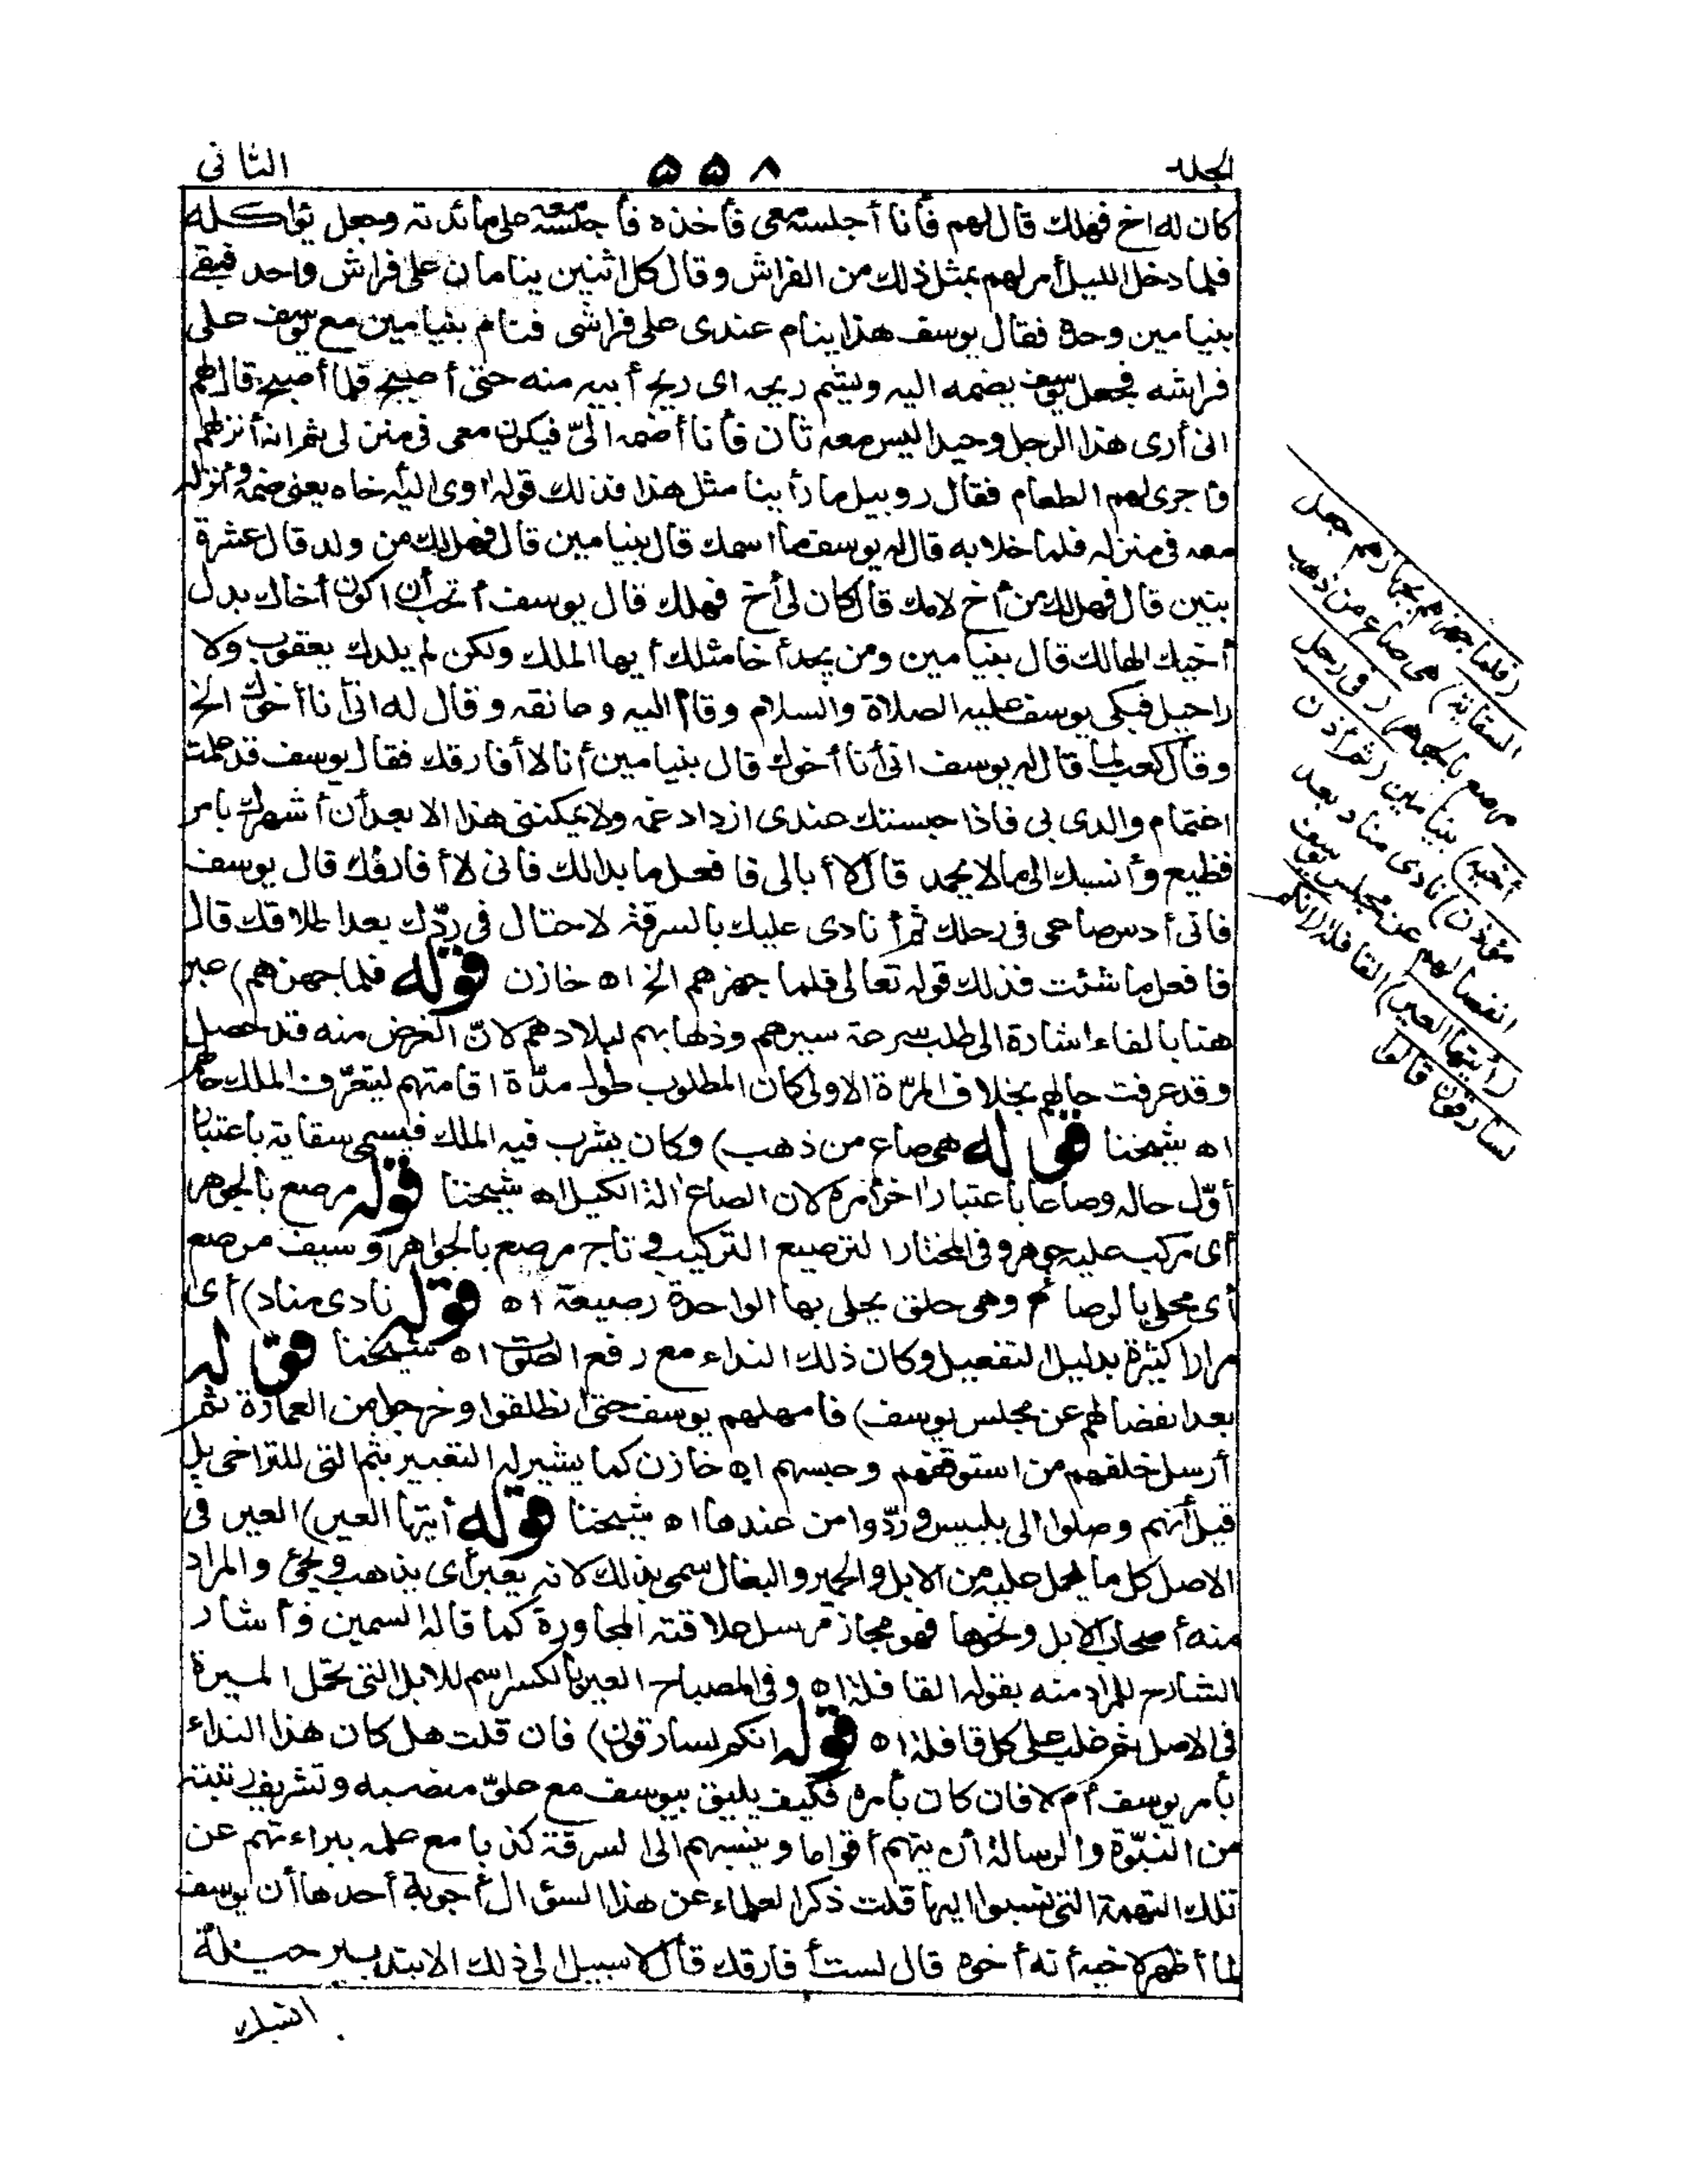 الجلد
۵۵۸
الثانى
كان له اخ فهلك قال لهم فأنا أجلسه معى فأخذه فأجلسه معه على مائدته وجعل يواكله
فلما دخل الليل أمر لهم بمثل ذلك من الفراش وقال كل اثنين ينامان على فراش واحد فبقى
بنيامين وحده فقال يوسف هذا ينام عندى على فراشى فنام بنيامين مع يوسف على
فراشه فجعل يوسف يضمه اليه ويشم ريحه اى ريح أبيه منه حتى أصبح فلما أصبح قال لهم
انى أرى هذا الرجل وحيدا ليس معه ثان فأنا أضمه الىّ فيكون معى فى منزلى ثم انه أنزلهم
وأجرى لهم الطعام فقال روبيل ما رأينا مثل هذا فذلك قوله اوى اليه اخاه يعنى ضمه وأنزله
معه فى منزله فلما خلا به قال له يوسف ما اسمك قال بنيامين قال فهل لك من ولد قال عشرة
بنين قال فهل لك من أخ لامك قال كان لى أخ فهلك قال يوسف أتحب أن اكون أخاك بدل
أخيك الهالك قال بنيامين ومن يجد أخا مثلك أيها الملك ولكن لم يلدك يعقوب ولا
راحيل فبكى يوسف عليه الصلاة والسلام وقام اليه وعانقه وقال له انى أنا أخوك الخ
وقال كعب لما قال له يوسف انى أنا أخوك قال بنيامين أنا لا أفارقك فقال يوسف قد علمت
اغتمام والدى بى فاذا حبستك عندى ازداد غمه ولا يمكننى هذا الا بعد أن أشهرك بامر
فظيع وأنسبك الى ما لا يحمد قال لا أبالى فافعل ما بدا لك فانى لا أفارقك قال يوسف
فانى أدس صاعى فى رحلك ثم أنادى عليك بالسرقة لاحتال فى ردّك بعد اطلاقك قال
فافعل ما شئت فذلك قوله تعالى فلما جهزهم الخ اه خازن قوله فلما جهزهم) عبر
هنا بالفاء اشارة الى طلب سرعة سيرهم وذهابهم لبلادهم لانّ الغرض منه قد حصل
وقد عرفت حالهم بخلاف المرّة الاولى كان المطلوب طول مدّة اقامتهم ليتعرّف الملك حالهم
اه شيخنا قوله هى صاع من ذهب) وكان يشرب فيه الملك فيسمى سقاية باعتبار
أوّل حاله وصاعا باعتبار اخر أمره لان الصاع الة الكيل اه شيخنا قوله مرصع بالجوهر
أى مركب عليه جوهر وفى المختار الترصيع التركيب وتاج مرصع بالجواهر وسيف مرصع
أى محلى بالرصائع وهى حلق يحلى بها الواحدة رصيعة اه قوله نادى مناد) أى
مرارا كثيرة بدليل التفعيل وكان ذلك النداء مع رفع الصوت اه شيخنا قوله
بعد انفصالهم عن مجلس يوسف) فامهلهم يوسف حتى انطلقوا وخرجوا من العمارة ثم
أرسل خلفهم من استوقفهم وحبسهم اه خازن كما يشير له التعبير بثم التى للتراخى بل
قيل أنهم وصلوا الى بلبيس وردّوا من عندها اه شيخنا قوله أيتها العير) العير فى
الاصل كل ما يحمل عليه من الابل والحمير والبغال سمى بذلك لانه يعير أى يذهب ويجئ والمراد
منه أصحاب الابل ونحوها فهو مجاز مرسل علاقته المجاورة كما قاله السمين وأشار
الشارح للمراد منه بقوله القافلة اه وفى المصباح العير بالكسر اسم للابل التى تحمل الميرة
فى الاصل ثم غلب على كل قافلة اه قوله انكم لسارقون) فان قلت هل كان هذا النداء
بأمر يوسف أم لا فان كان بأمره فكيف يليق بيوسف مع علوّ منصبه وتشريف رتبته
من النبوّة والرسالة أن يتهم أقواما وينسبهم الى السرقة كذبا مع علمه ببراءتهم عن
تلك التهمة التى نسبوا اليها قلت ذكر العلماء عن هذا السؤال أجوبة أحدها أن يوسف
لما أظهر لاخيه أنه أخوه قال لست أفارقك قال لا سبيل الى ذلك الا بتدبير حيلة
(فلما جهزهم بجهازهم جعل
السقاية) هى صاع من ذهب
مرصع بالجوهر (فى رحل
أخيه) بنيامين (ثم أذن
مؤذن) نادى مناد بعد
انفصالهم عن مجلس يوسف
(أيتها العير) القافلة (انكم
لسارقون قالوا